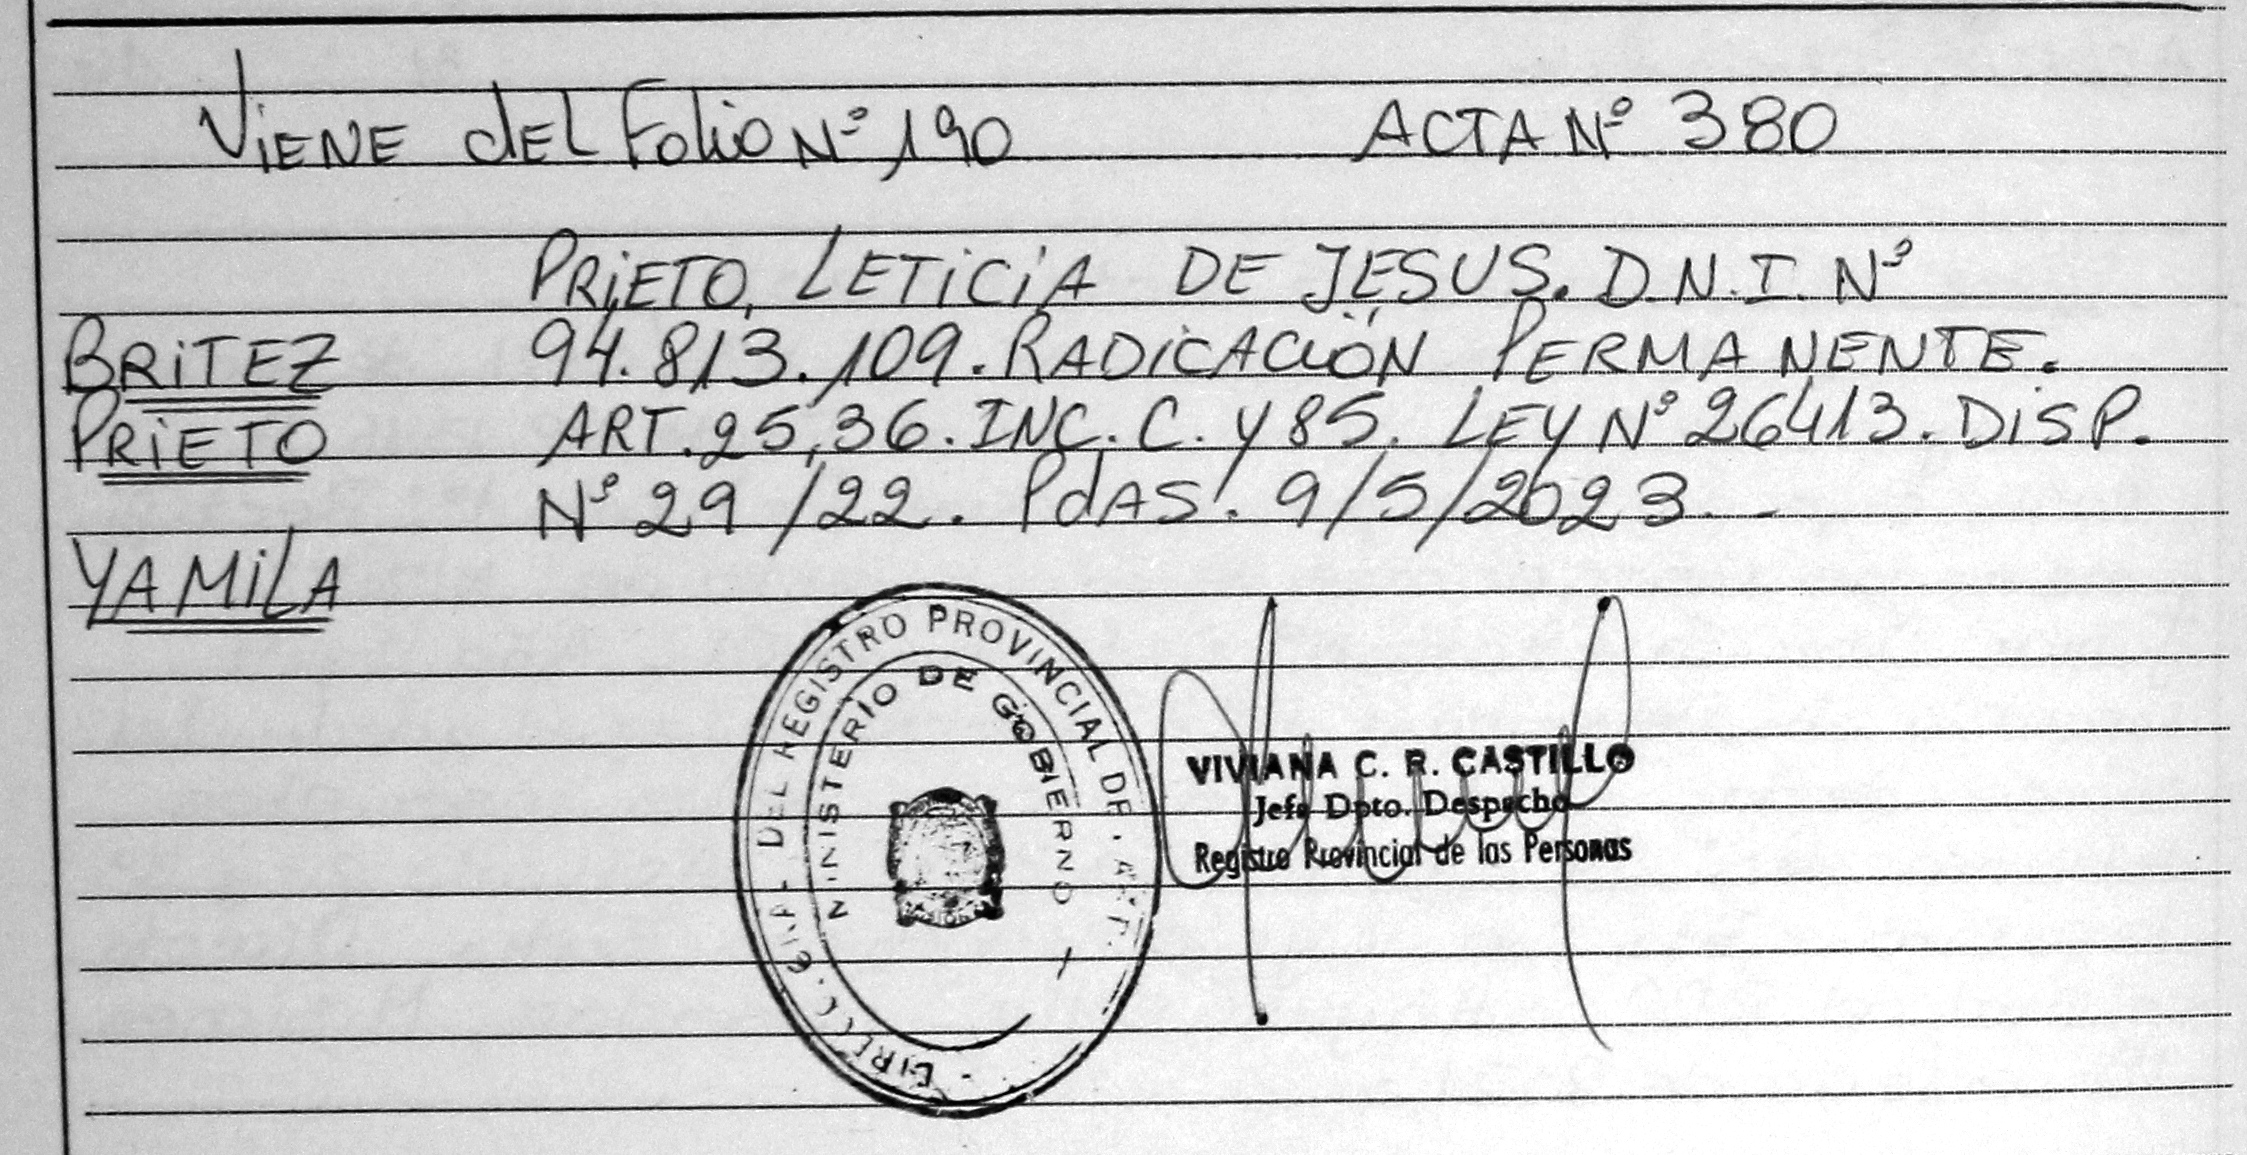 Viene del Folio Nº 190 ACTA Nº 380
PRIETO, LETICIA DE JESUS. D.N.I. Nº
BRITEZ 94.813.109. RADICACIÓN PERMANENTE.
PRIETO ART. 25, 36. INC. C. Y 85. LEY Nº 26413. DISP.
Nº 29/22. Pdas. 9/5/2023.-
YAMILA
DEL REGISTRO PROVINCIAL DE
MINISTERIO DE GOBIERNO
VIVIANA C. R. CASTILLO
Jefe Dpto. Despacho
Registro Provincial de las Personas